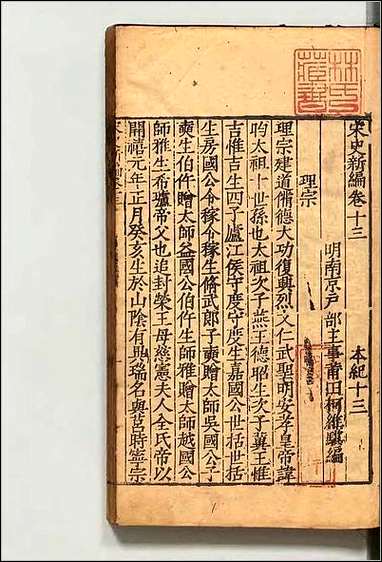 宋史新編卷十三
本紀十三
明南京戶部主事莆田柯維騏編
理宗
理宗建道備德大功復興烈文仁武聖明安孝皇帝諱
昀太祖十世孫也太祖次子燕王德昭生次子冀王惟
吉惟吉生四子廬江侯守度守度生嘉國公世括世括
生房國公令稼令稼生修武郎子奭贈太師吳國公子
奭生伯仵贈太師益國公伯仵生師雅贈太師越國公
師雅生希瓐帝父也追封榮王母慈憲夫人全氏帝以
開禧元年正月癸亥生於山陰有異瑞名與莒時寧宗